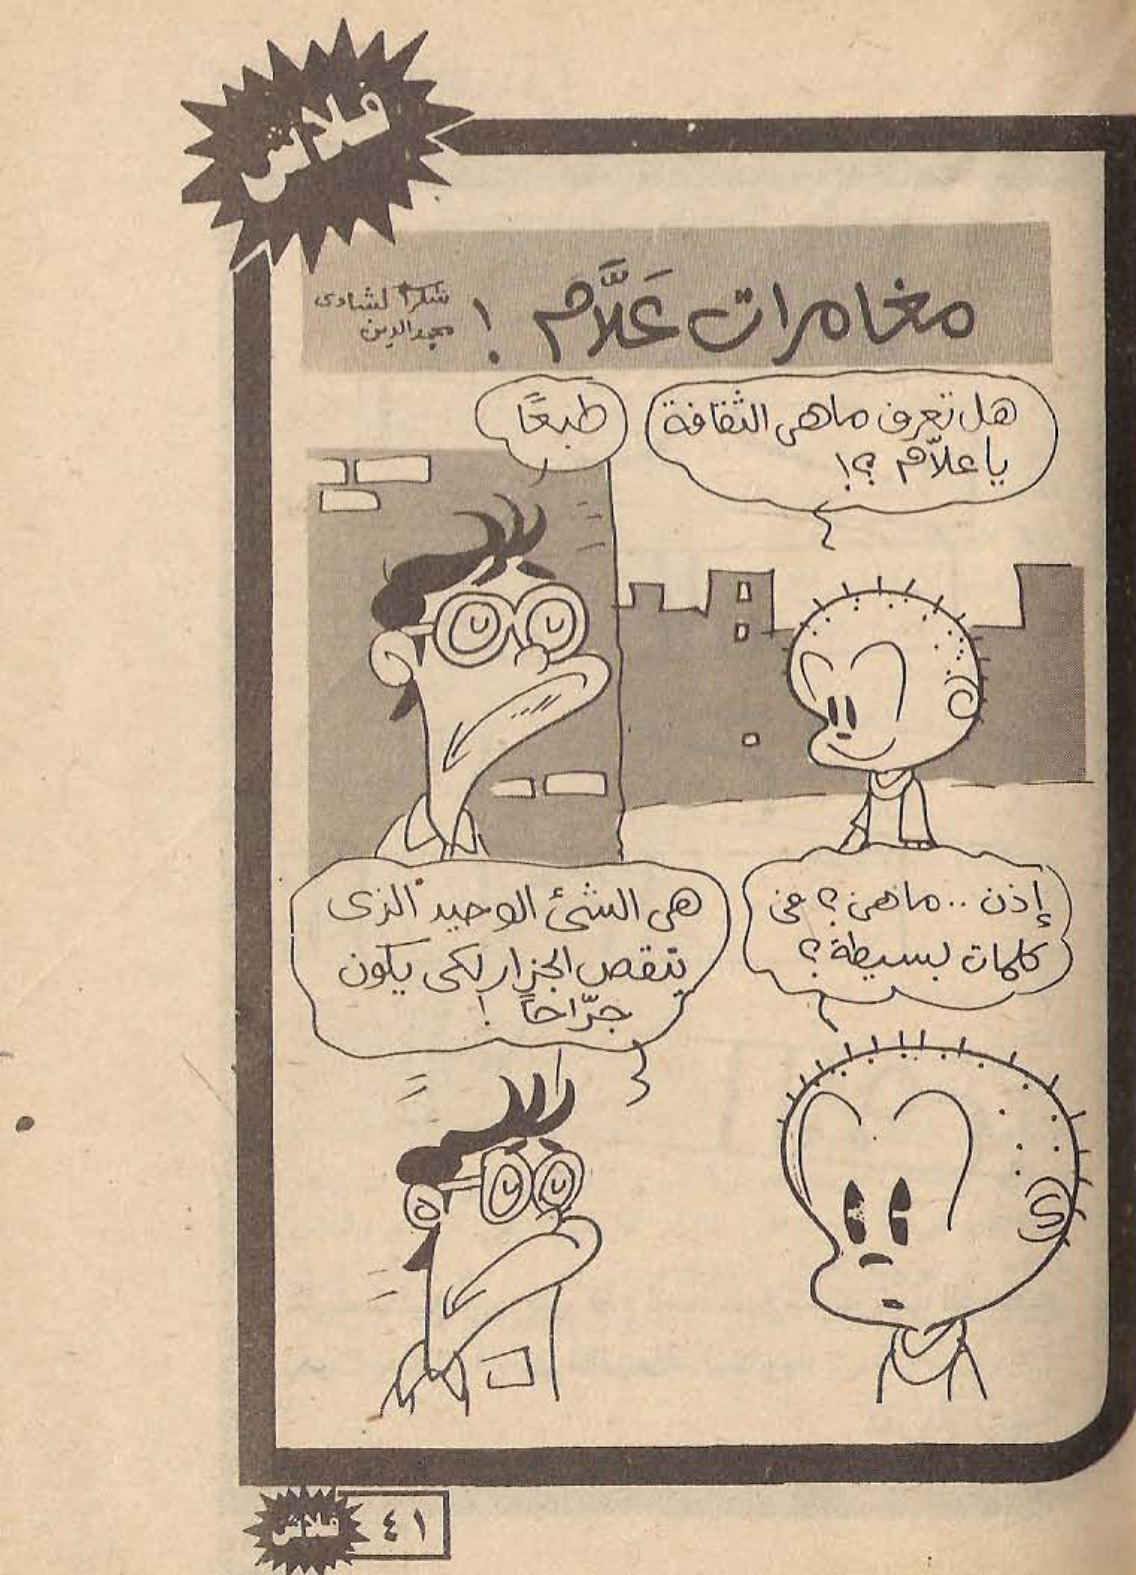 فلاش
مغامرات عَلَّام !
شكراً لشادى
مجد الدين
هل تعرف ماهى الثقافة
يا علاّم ؟!
طبعًا
إذن .. ماهى ؟ فى
كلمات بسيطة ؟
هى الشئ الوحيد الذى
ينقص الجزار لكى يكون
جرّاحاً !
فلاش
٤١